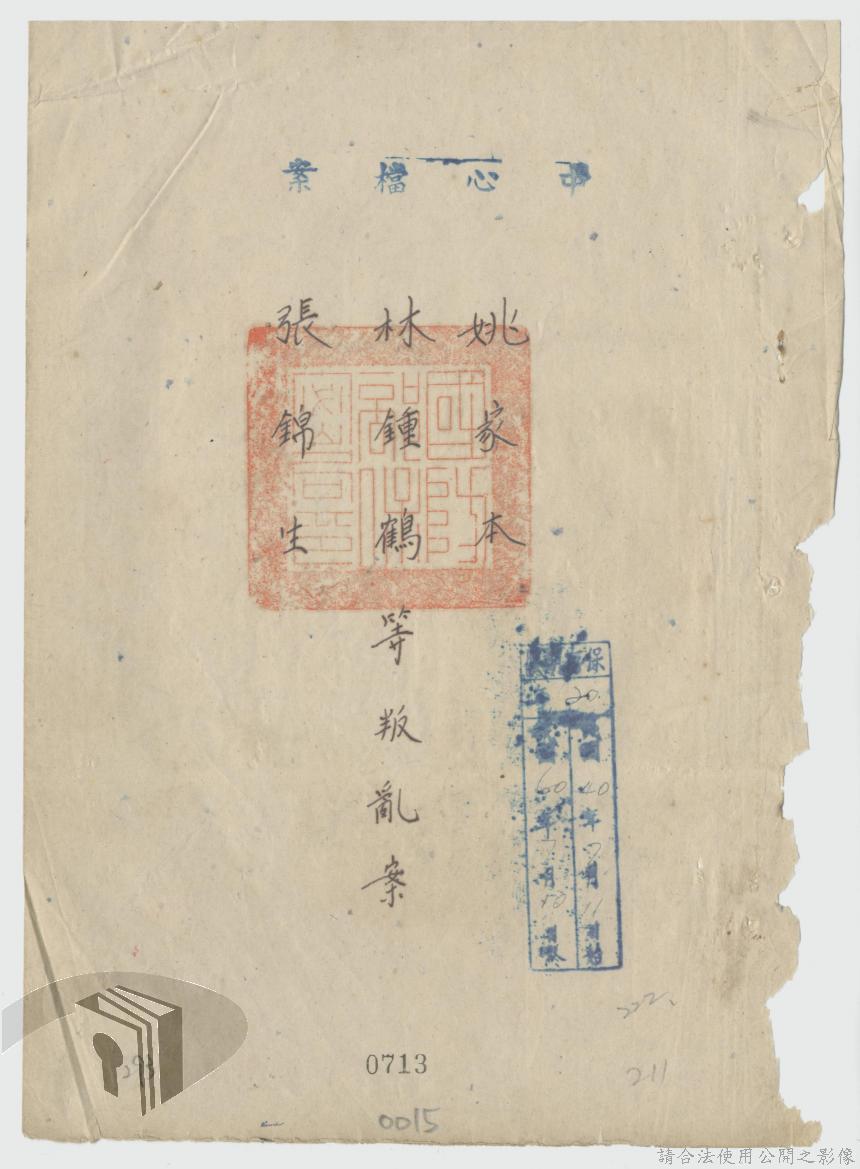 中心檔案
姚家本
林鍾鶴
張錦生
等叛亂案
保
20
40年7月11日始
60年7月10日
222、
211
293
0713
0015
請合法使用公開之影像